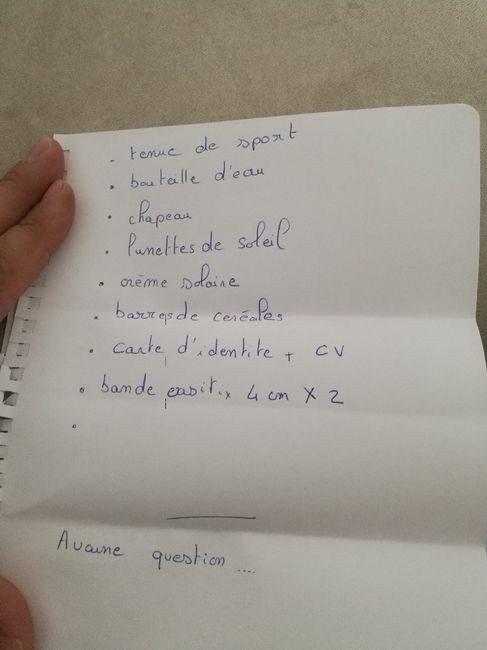 . tenue de sport
. bouteille d'eau
. chapeau
. lunettes de soleil
. crème solaire
. barres de ceréales
. carte d'identite + CV
. bande 4 cm X 2
.
Aucune question ....